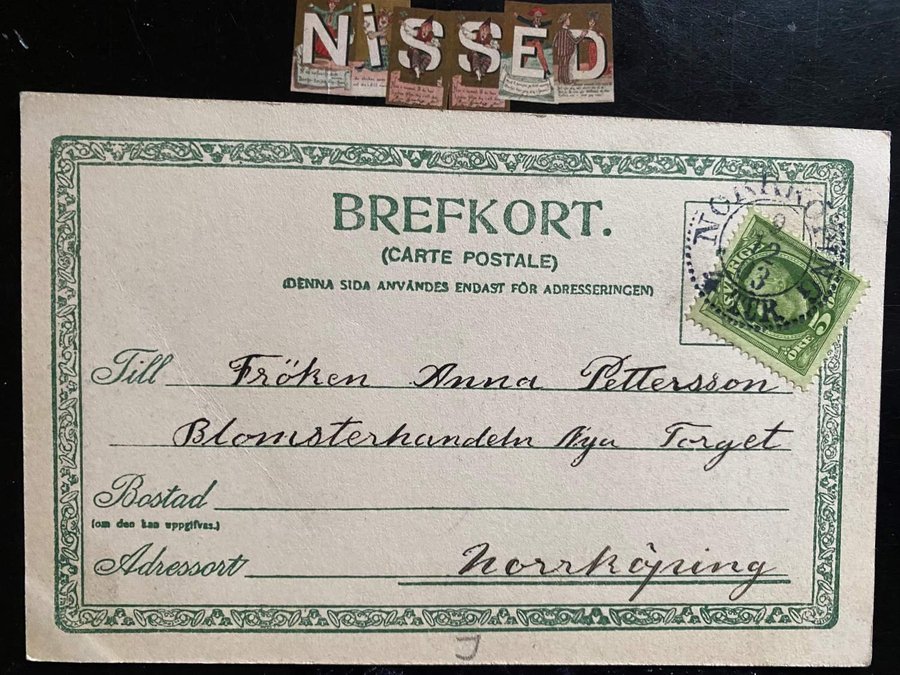 NiSSED
BREFKORT.
(CARTE POSTALE)
(DENNA SIDA ANVÄNDES ENDAST FÖR ADRESSERINGEN)
NORRKÖPING
12
3
SVERIGE
5 ÖRE
Till Fröken Anna Pettersson
Blomsterhandeln Nya Torget
Bostad
(om den kan uppgifvas.)
Adressort Norrköping